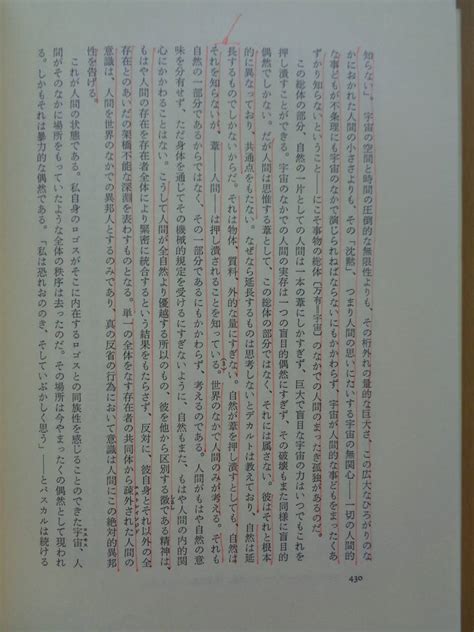 知らない」。宇宙の空間と時間の圧倒的な無限性よりも、その桁外れの量的な巨大さ、この広大なひろがりのな
かにおかれた人間の小ささよりも、その「沈黙」、つまり人間の思いにたいする宇宙の無関心――一切の人間的
な事どもが不条理にも宇宙のなかで演じられねばならないにもかかわらず、宇宙が人間的な事どもをまったくあ
ずかり知らないということ――にこそ事物の総体〔万有＝宇宙〕のなかでの人間のまったき孤独があるのだ。
この総体の部分、自然の一片としての人間は一本の葦にしかすぎず、巨大で盲目な宇宙の力はいつでもこれを
押し潰すことができる。宇宙のなかでの人間の実存は一つの盲目的偶然にすぎず、その破壊もまた同様に盲目的
偶然でしかない。だが人間は思惟する葦として、この総体の部分ではなく、それには属さない。彼はそれと根本
的に異なっており、共通点をもたない。なぜなら延長するものは思考しないとデカルトは教えており、自然は延
長するものでしかないからだ。それは物体、質料、外的な量にすぎない。自然が葦を押し潰すとしても、自然は
それを知らないが、葦――人間――は押し潰されることを知っている。世界のなかで人間のみが考える。それも
自然の一部分であるからではなく、その一部分であるにもかかわらず、考えるのである。人間がもはや自然の意
味を分有せず、ただ身体を通じてその機械的規定を受けるにすぎないように、自然もまた、もはや人間の内的関
心にかかわることはない。こうして人間が全自然より優越する所以のもの、彼を他から区別する徴である精神は、
もはや人間の存在を存在者全体により緊密に統合するという結果をもたらず、反対に、彼自身とそれ以外の全
存在とのあいだの架橋不能な深淵を表わすものとなる。単一の全体をなす存在者の共同体から疎外された人間の
意識は、人間を世界のなかでの異邦人とするのみであり、真の反省の行為において意識は人間にこの絶対的異邦
性を告げる。
これが人間の状態である。私自身のロゴスがそこに内在するロゴスとの同族性を感じることのできた宇宙、人
間がそのなかに場所をもっていたような全体の秩序は去ったのだ。その場所は今やまったくの偶然として現われ
る。しかもそれは暴力的な偶然である。「私は恐れおののき、そしていぶかしく思う」――とパスカルは続ける
430